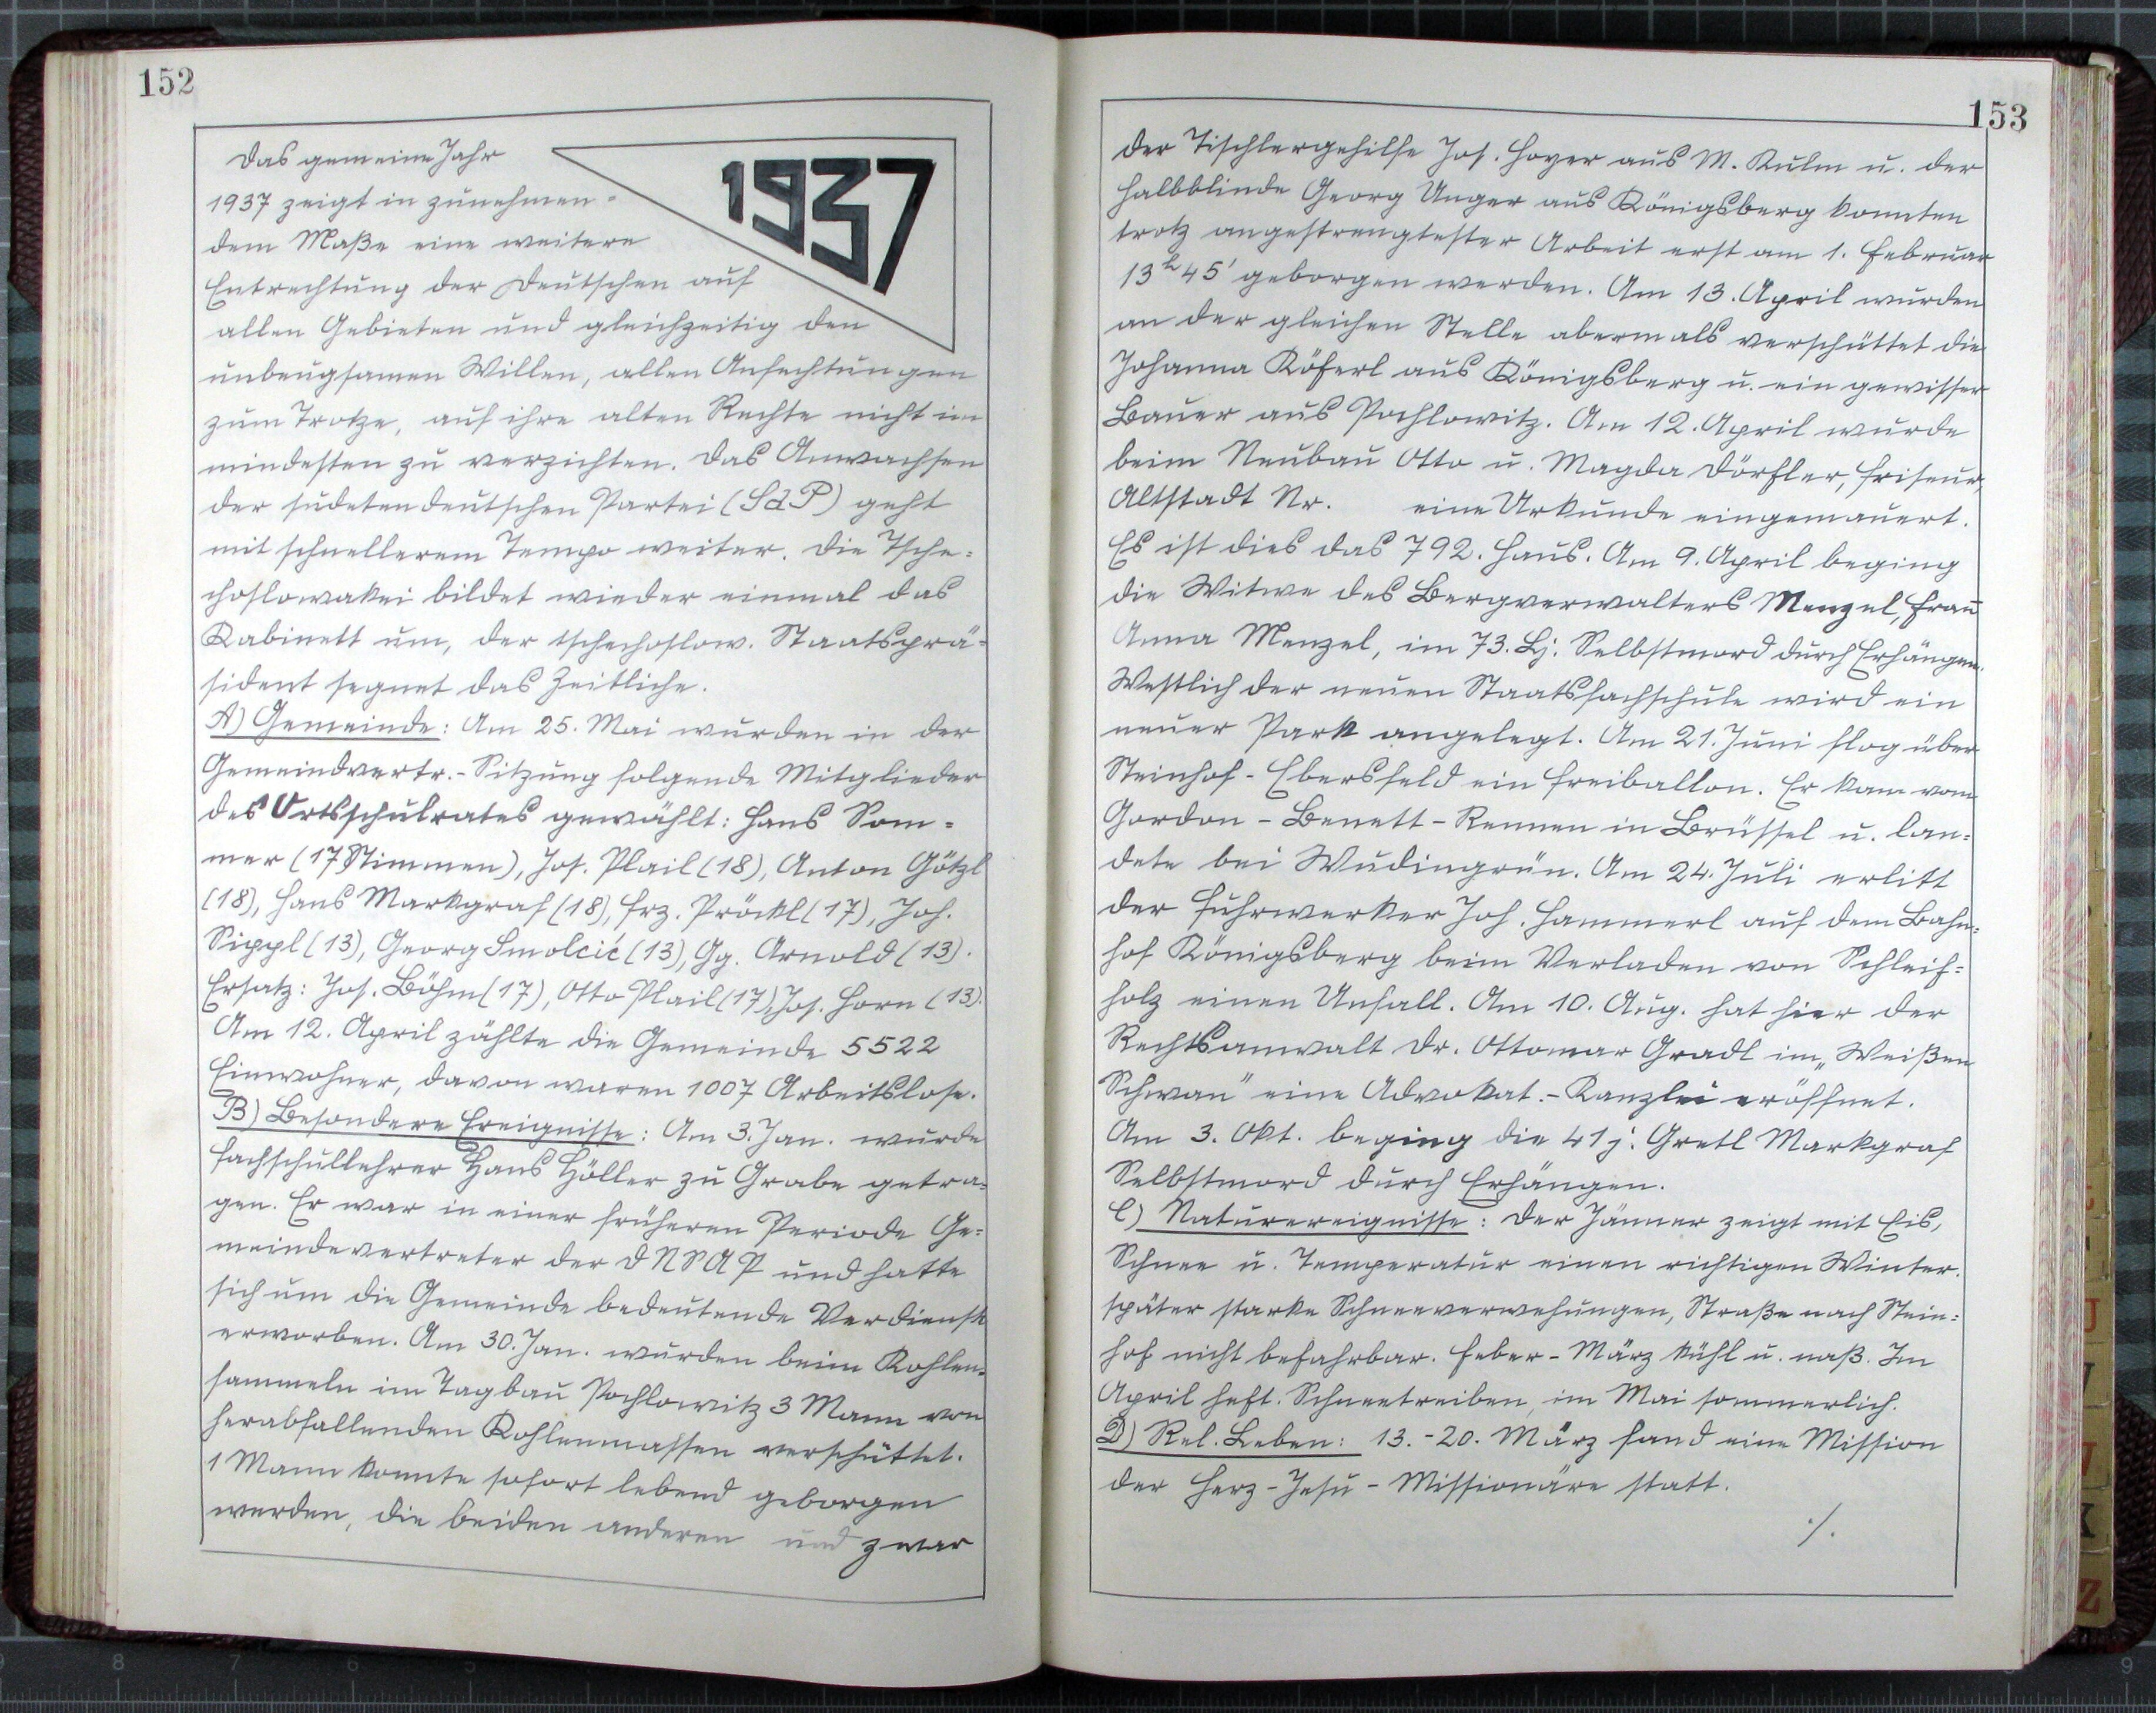 152
1937
Das gemeine Jahr
1937 zeigt in zunehmen-
dem Maße eine weitere
Entrechtung der Deutschen auf
allen Gebieten und gleichzeitig den
unbeugsamen Willen, allen Anfechtungen
zum Trotze, auf ihre alten Rechte nicht im
mindesten zu verzichten. Das Anwachsen
der sudetendeutschen Partei (SdP) geht
mit schnellerem Tempo weiter. Die Tsche=
choslowakei bildet wieder einmal das
Kabinett um, der tschechoslow. Staatsprä=
sident segnet das Zeitliche.
A) Gemeinde: Am 25. Mai wurden in der
Gemeindvertr.-Sitzung folgende Mitglieder
des Ortsschulrates gewählt: Hans Som=
mer (17 Stimmen), Jos. Plail (18), Anton Götzl
(18), Hans Markgraf (18), Frz. Pröckl (17), Joh.
Sippl (13), Georg Smolcić (13), Gg. Arnold (13).
Ersatz: Jos. Böhm (17), Otto Plail (17), Jos. Horn (13).
Am 12. April zählte die Gemeinde 5522
Einwohner, davon waren 1007 Arbeitslose.
B) Besondere Ereignisse: Am 3. Jan. wurde
Fachschullehrer Hans Höller zu Grabe getra=
gen. Er war in einer früheren Periode Ge=
meindevertreter der DNSAP und hatte
sich um die Gemeinde bedeutende Verdienste
erworben. Am 30. Jan. wurden beim Kohlen=
sammeln im Tagbau Pochlowitz 3 Mann von
herabfallenden Kohlenmassen verschüttet.
1 Mann konnte sofort lebend geborgen
werden, die beiden anderen und zwar
153
der Tischlergehilfe Jos. Hoyer aus M. Kulm u. der
halbblinde Georg Unger aus Königsberg konnten
trotz angestrengtester Arbeit erst am 1. Februar
13h 45' geborgen werden. Am 13. April wurden
an der gleichen Stelle abermals verschüttet die
Johanna Köferl aus Königsberg u. ein gewisser
Bauer aus Pochlowitz. Am 12. April wurde
beim Neubau Otto u. Magda Dörfler, Friseur,
Altstadt Nr. eine Urkunde eingemauert.
Es ist dies das 792. Haus. Am 9. April beging
die Witwe des Bergverwalters Menzel, Frau
Anna Menzel, im 73. Lj. Selbstmord durch Erhängen.
Westlich der neuen Staatsfachschule wird ein
neuer Park angelegt. Am 21. Juni flog über
Steinhof-Ebersfeld ein Freiballon. Er kam vom
Gordon-Benett-Rennen in Brüssel u. lan=
dete bei Wudingrün. Am 24. Juli erlitt
der Fuhrwerker Joh. Hammerl auf dem Bahn=
hof Königsberg beim Verladen von Schleif=
holz einen Unfall. Am 10. Aug. hat hier der
Rechtsanwalt Dr. Ottomar Gradl im „Weißen
Schwan" eine Advokat.-Kanzlei eröffnet.
Am 3. Okt. beging die 41 j. Gretl Markgraf
Selbstmord durch Erhängen.
C) Naturereignisse: Der Jänner zeigt mit Eis,
Schnee u. Temperatur einen richtigen Winter.
später starke Schneeverwehungen, Straße nach Stein=
hof nicht befahrbar. Feber-März kühl u. naß. Im
April heft. Schneetreiben, im Mai sommerlich.
D) Rel. Leben: 13.-20. März fand eine Mission
der Herz-Jesu-Missionäre statt.
./.